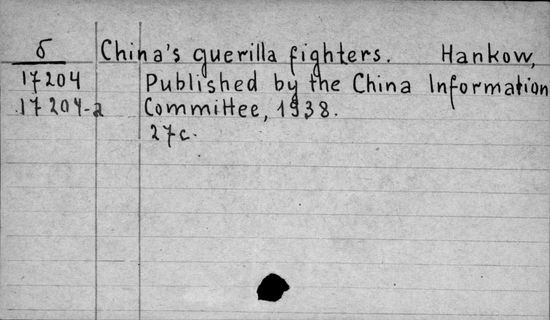 б China's guerilla fighters. Hankow,
17204 Published by the China Information
17204-a Committee, 1938.
27c.